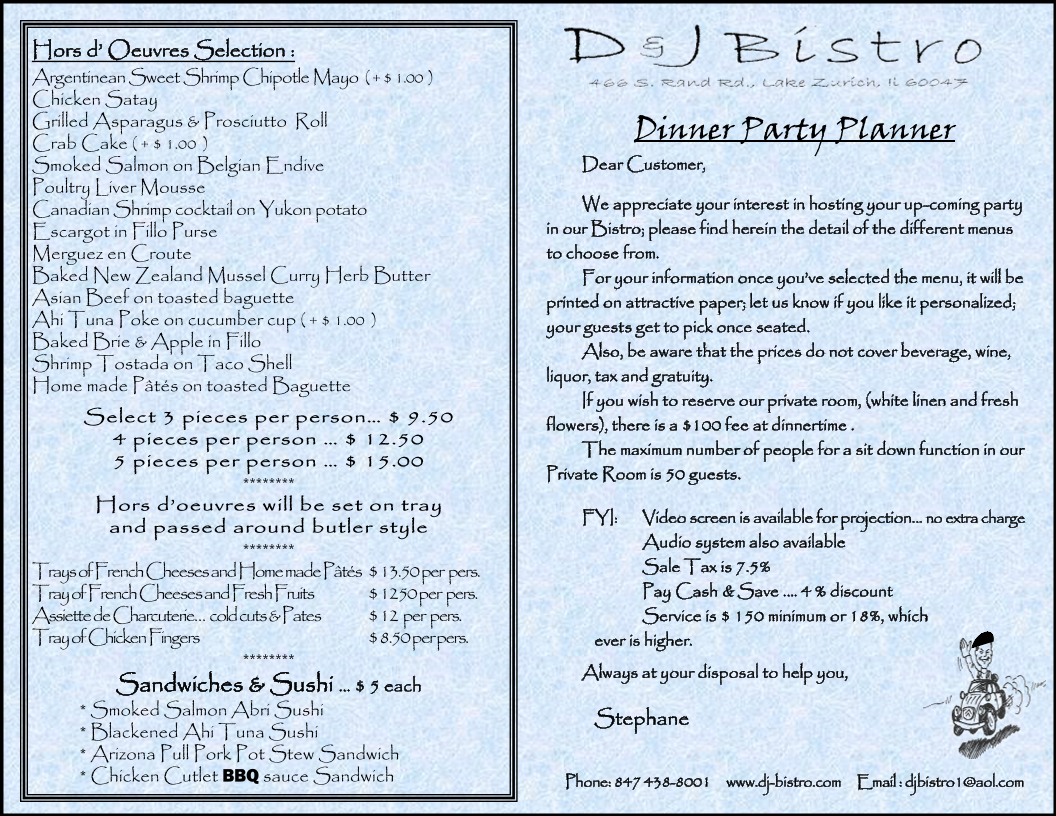 Hors d' Oeuvres Selection :
Argentinean Sweet Shrimp Chipotle Mayo ( + $ 1.00 )
Chicken Satay
Grilled Asparagus & Prosciutto Roll
Crab Cake ( + $ 1.00 )
Smoked Salmon on Belgian Endive
Poultry Liver Mousse
Canadian Shrimp cocktail on Yukon potato
Escargot in Fillo Purse
Merguez en Croute
Baked New Zealand Mussel Curry Herb Butter
Asian Beef on toasted baguette
Ahi Tuna Poke on cucumber cup ( + $ 1.00 )
Baked Brie & Apple in Fillo
Shrimp Tostada on Taco Shell
Home made Pâtés on toasted Baguette
Select 3 pieces per person... $ 9.50
4 pieces per person ... $ 12.50
5 pieces per person ... $ 15.00
********
Hors d'oeuvres will be set on tray
and passed around butler style
********
Trays of French Cheeses and Home made Pâtés $ 13.50 per pers.
Tray of French Cheeses and Fresh Fruits $ 1250 per pers.
Assiette de Charcuterie... cold cuts & Pates $ 12 per pers.
Tray of Chicken Fingers $ 8.50 per pers.
********
Sandwiches & Sushi ... $ 5 each
* Smoked Salmon Abri Sushi
* Blackened Ahi Tuna Sushi
* Arizona Pull Pork Pot Stew Sandwich
* Chicken Cutlet BBQ sauce Sandwich
D & J Bistro
466 S. Rand Rd., Lake Zurich, Il 60047
Dinner Party Planner
Dear Customer,
We appreciate your interest in hosting your up-coming party
in our Bistro; please find herein the detail of the different menus
to choose from.
For your information once you've selected the menu, it will be
printed on attractive paper; let us know if you like it personalized;
your guests get to pick once seated.
Also, be aware that the prices do not cover beverage, wine,
liquor, tax and gratuity.
If you wish to reserve our private room, (white linen and fresh
flowers), there is a $100 fee at dinnertime .
The maximum number of people for a sit down function in our
Private Room is 50 guests.
FYI: Video screen is available for projection... no extra charge
Audio system also available
Sale Tax is 7.5%
Pay Cash & Save .... 4 % discount
Service is $ 150 minimum or 18%, which
ever is higher.
Always at your disposal to help you,
Stephane
Phone: 847 438-8001 www.dj-bistro.com Email : djbistro1@aol.com